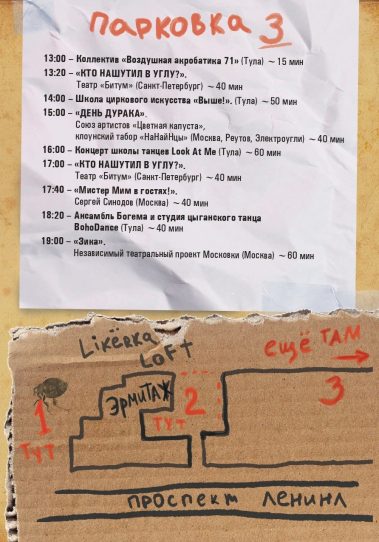 ПАРКОВКА 3
13:00 – Коллектив «Воздушная акробатика 71» (Тула) ~ 15 мин
13:20 – «КТО НАШУТИЛ В УГЛУ?».
Театр «Битум» (Санкт-Петербург) ~ 40 мин
14:00 – Школа циркового искусства «Выше!». (Тула) ~ 50 мин
15:00 – «ДЕНЬ ДУРАКА».
Союз артистов «Цветная капуста»,
клоунский табор «НаНайНцы» (Москва, Реутов, Электроугли) ~ 40 мин
16:00 – Концерт школы танцев Look At Me (Тула) ~ 60 мин
17:00 – «КТО НАШУТИЛ В УГЛУ?».
Театр «Битум» (Санкт-Петербург) ~ 40 мин
17:40 – «Мистер Мим в гостях!».
Сергей Синодов (Москва) ~ 40 мин
18:20 – Ансамбль Богема и студия цыганского танца
BohoDance (Тула) ~ 40 мин
19:00 – «Зика».
Независимый театральный проект Московки (Москва) ~ 60 мин
Likёrka
LOFT
ЕЩЁ ТАМ
3
1
ТУТ
ЭРМИТАЖ
2
ТУТ
проспект Ленина